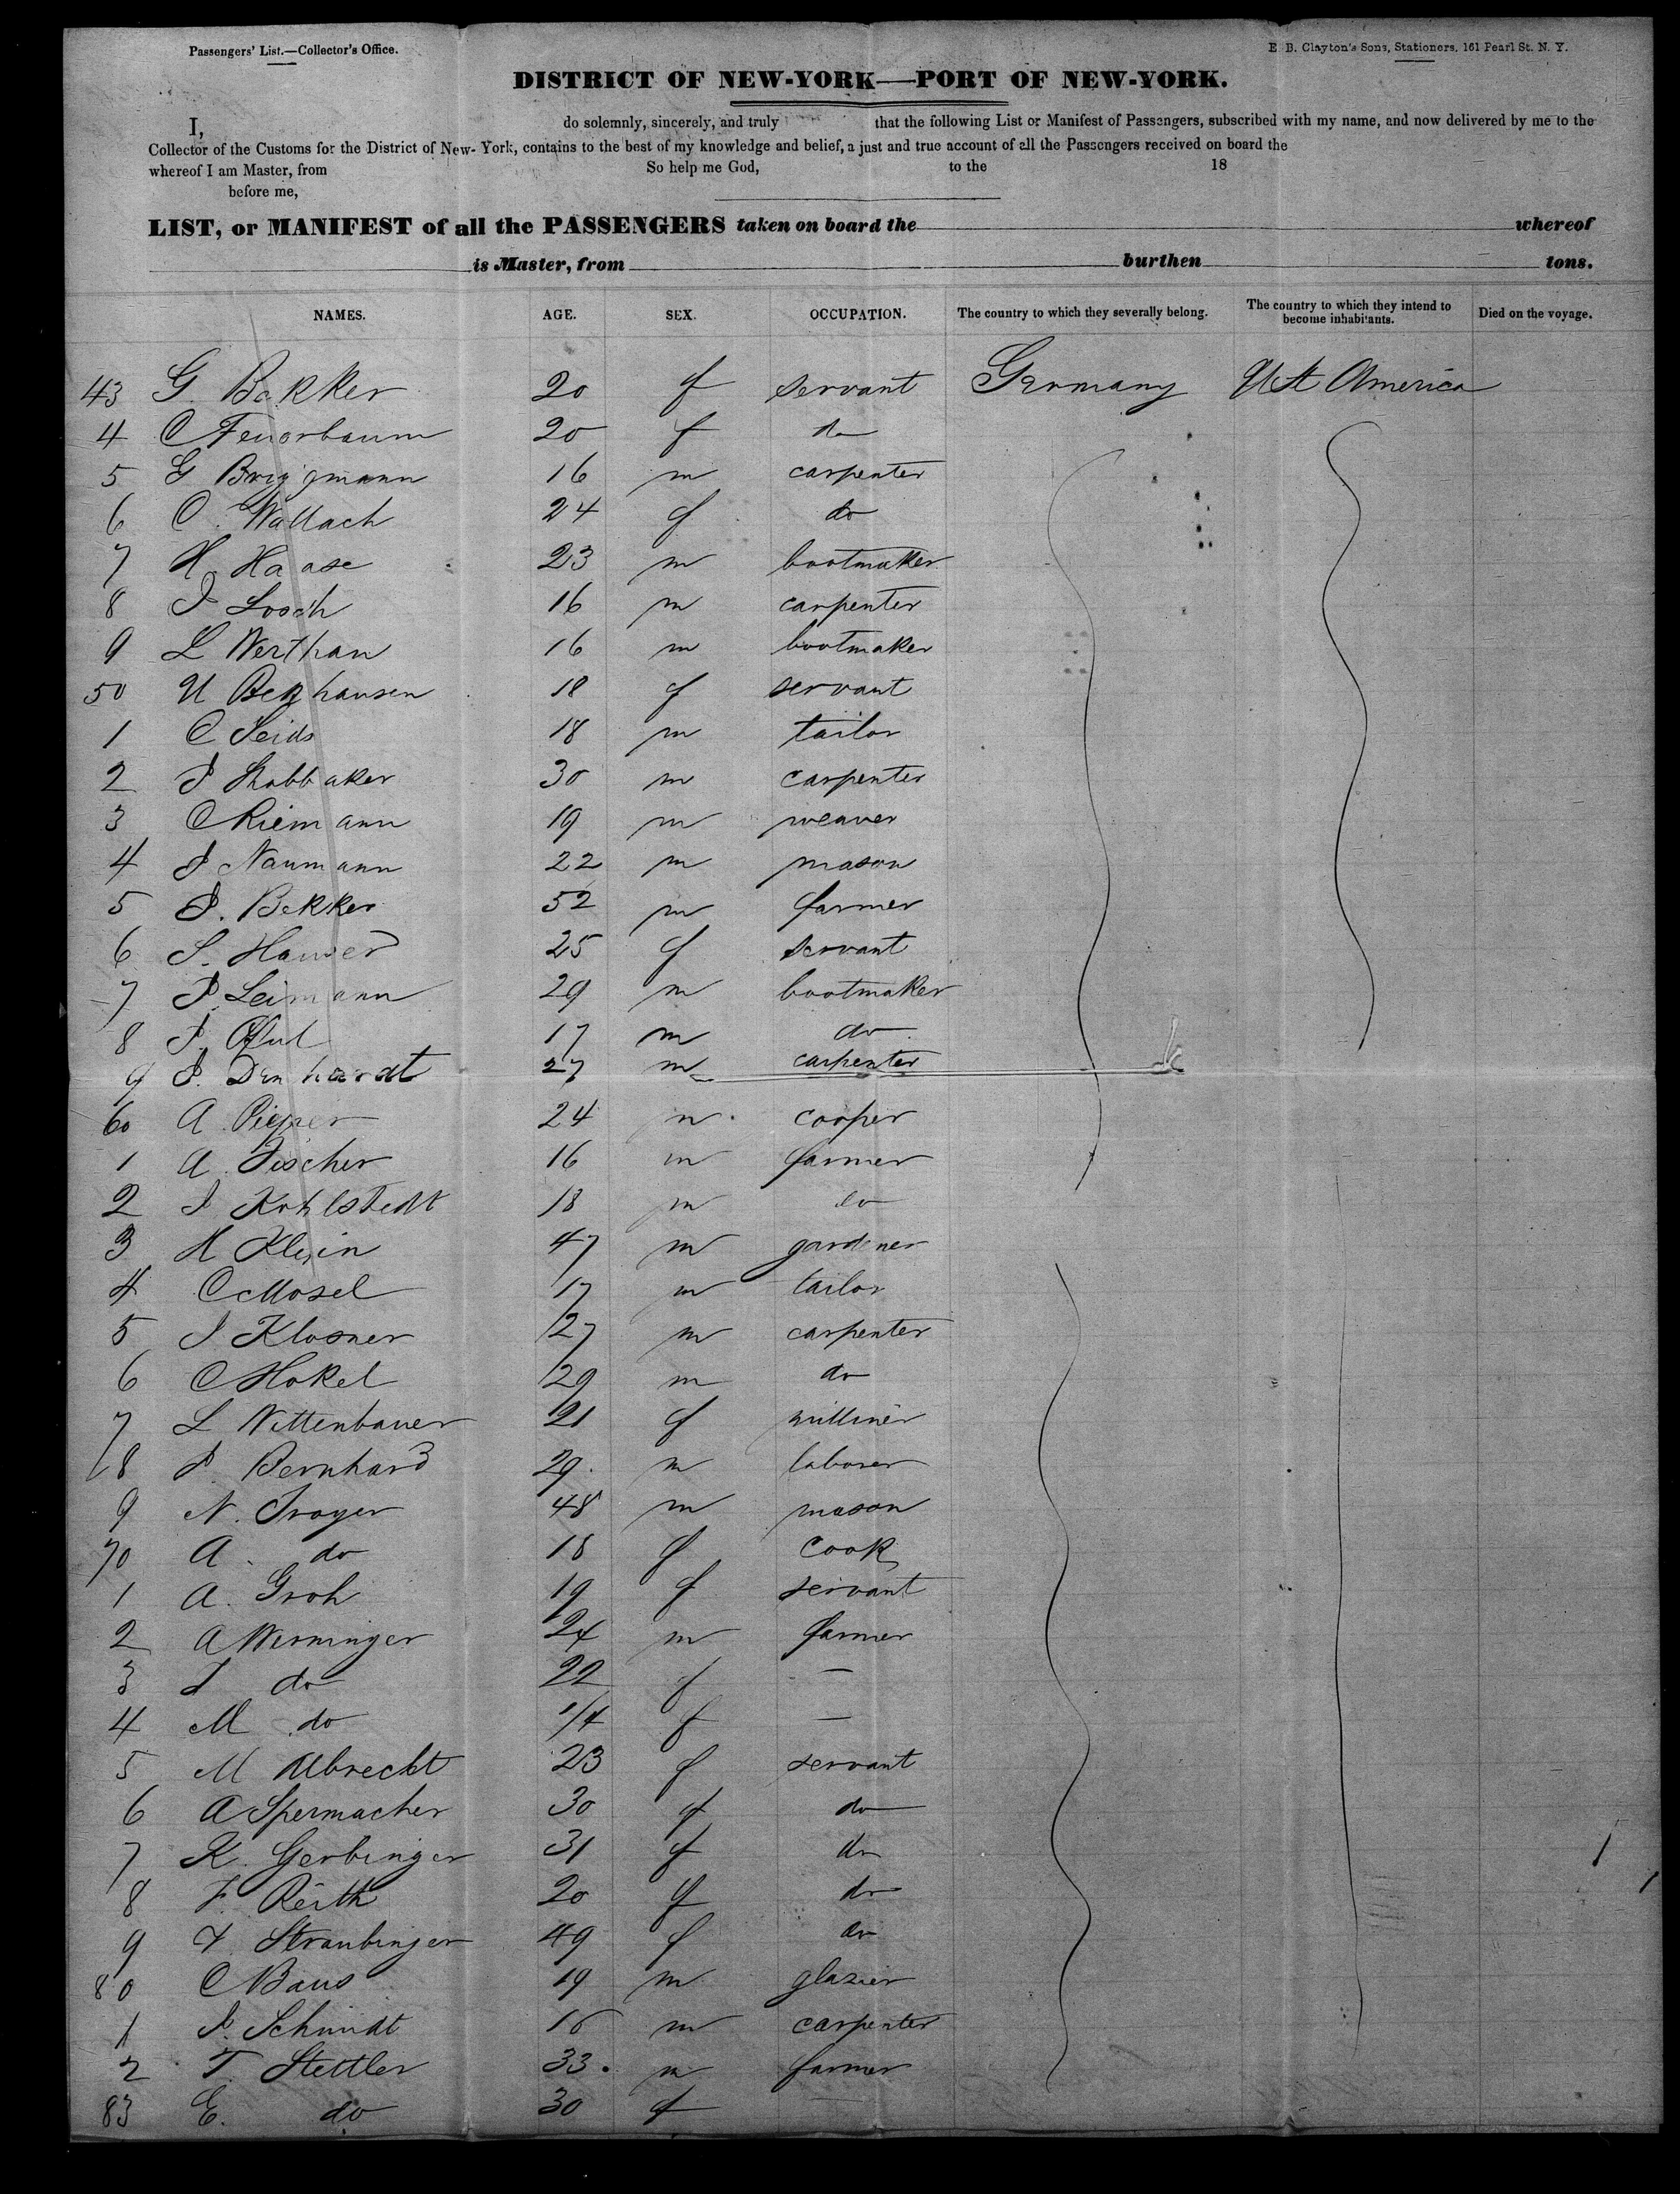 Passengers' List.—Collector's Office.
E. B. Clayton's Sons, Stationers, 161 Pearl St. N. Y.
DISTRICT OF NEW-YORK—PORT OF NEW-YORK.
I, do solemnly, sincerely, and truly that the following List or Manifest of Passengers, subscribed with my name, and now delivered by me to the
Collector of the Customs for the District of New-York, contains to the best of my knowledge and belief, a just and true account of all the Passengers received on board the
whereof I am Master, from So help me God, to the 18
before me,
LIST, or MANIFEST of all the PASSENGERS taken on board the whereof
is Master, from burthen tons.
NAMES. AGE. SEX. OCCUPATION. The country to which they severally belong. The country to which they intend to become inhabitants. Died on the voyage.
43 G. Bakker 20 f servant Germany USt America
4 C Feuerbaum 20 f do
5 G Brüggmann 16 m carpenter
6 C. Wallach 24 f do
7 H. Haase 23 m bootmaker
8 J Loosh 16 m carpenter
9 L Werthan 16 m bootmaker
50 U Berghausen 18 f servant
1 C Seids 18 m tailor
2 J 30 m carpenter
3 C Riemann 19 m weaver
4 J Naumann 22 m mason
5 J. Bekker 52 m farmer
6 S. Hauser 25 f servant
7 J. Leimann 29 m bootmaker
8 J. 17 m do
9 J. Denhardt 27 m carpenter
60 A. Pieper 24 m cooper
1 A. Fischer 16 m farmer
2 J Kohlstedt 18 m do
3 H Klein 47 m gardener
4 C Mosel 17 m tailor
5 J Klosner 27 m carpenter
6 C Hokel 29 m do
7 L Wittenbauer 21 f milliner
68 J. Bernhard 29. m laborer
9 N. Troger 48 m mason
70 A. do 18 f cook
1 A. Groh 19 f servant
2 A Werninger 24 m farmer
3 J do 22 f —
4 M do 1/4 f —
5 M Albrecht 23 f servant
6 A Spermacher 30 f do
7 K. Gerbinger 31 f do
8 F. Reith 20 f do
9 F. Straubinger 49 f do
80 C Baus 19 m glazier
1 J. Schmidt 16 m carpenter
2 T. Stettler 33. m farmer
83 E. do 30 f —